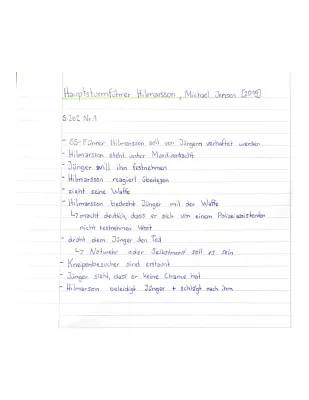 Hauptsturmführer Hilmarsson, Michael Jensen [2015]
S.202 Nr.1
- SS-Führer Hilmarsson soll von Jüngern verhaftet werden
- Hilmarsson steht unter Mordverdacht
- Jünger will ihn festnehmen
- Hilmarsson reagiert überlegen
- zieht seine Waffe
- Hilmarsson bedroht Jünger mit der Waffe
↳ macht deutlich, dass er sich von einem Polizeiassistenten
nicht festnehmen lässt
- droht dem Jünger den Tod
↳ Notwehr oder Selbstmord soll es sein
- Kneipenbesucher sind erstaunt
- Jünger sieht, dass er keine Chance hat
- Hilmarsson beleidigt Jünger + schlägt nach ihm